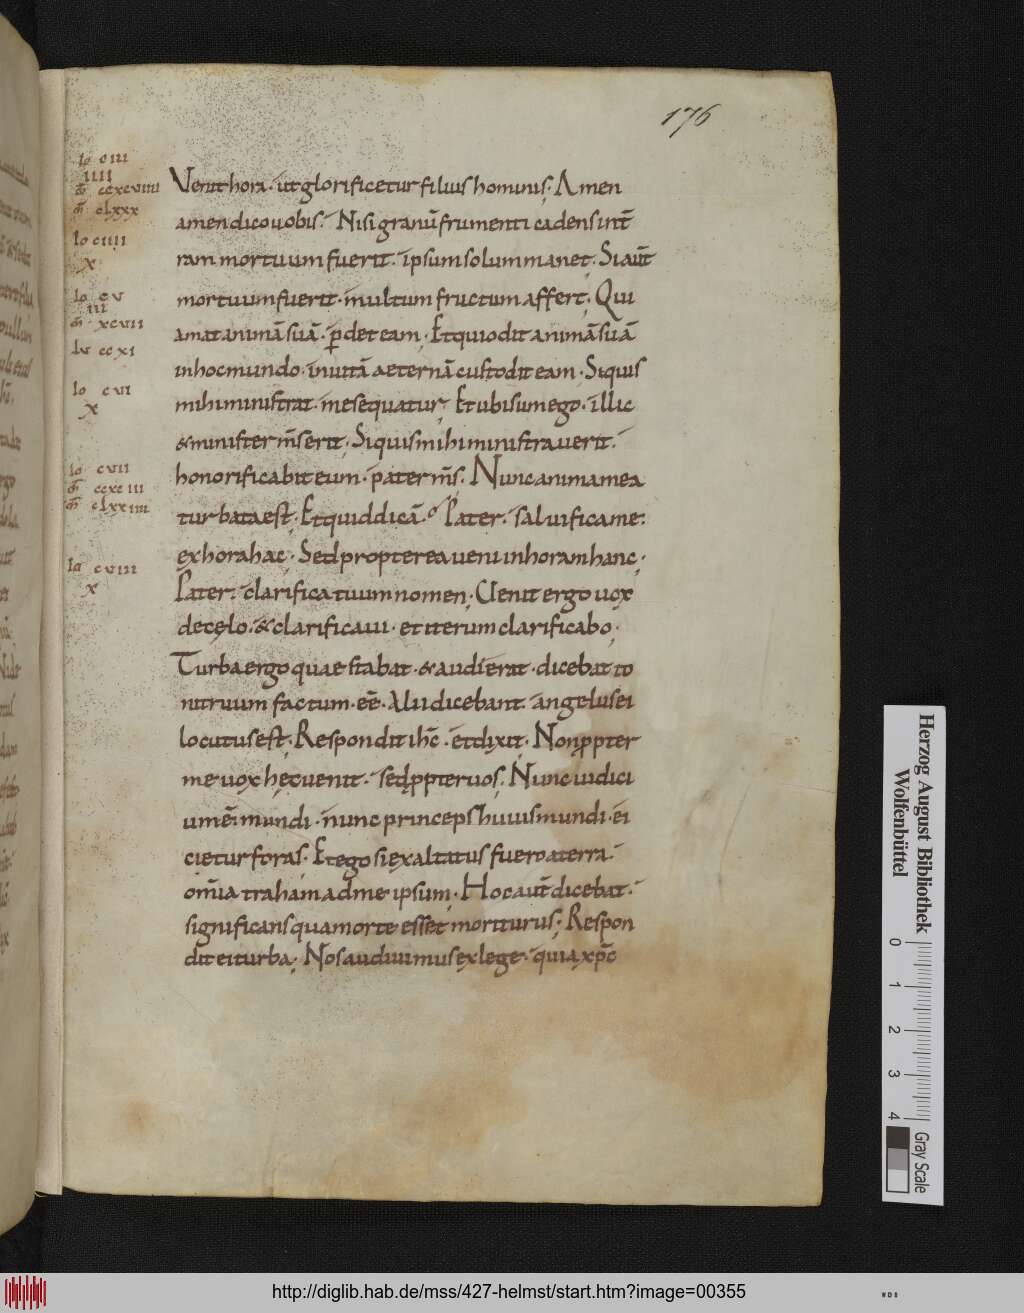 176
Io ciii
iiii
m̄ ccxcviiii
m̄ clxxx
Io ciiii
x
Io cv
iii
m̄ xcvii
Lu ccxi
Io cvi
x
Io cvii
m̄ ccxciii
m̄ clxxiiii
Io cviii
x
Venit hora. ut glorificetur filius hominis; Amen
amen dico uobis. Nisi granū frumenti cadens in t̄
ram mortuum fuerit. ipsum solum manet; Si aūt
mortuum fuerit. multum fructum affert; Qui
amat animā suā. ꝑdet eam; Et qui odit animā suā
in hoc mundo. in uitā aeternā custodit eam; Si quis
mihi ministrat. me sequatur; Et ubi sum ego. illic
& minister m̄s erit; Si quis mihi ministrauerit.
honorificabit eum. pater m̄s. Nunc anima mea
turbata est; Et quid dicā. Pater. saluifica me.
ex hora hac; Sed propterea ueni in horam hanc;
Pater. clarifica tuum nomen; Uenit ergo uox
de cęlo. & clarificaui. et iterum clarificabo;
Turba ergo quae stabat. & audierat. dicebat to
nitruum factum. eē. Alii dicebant. angelus ei
locutus est; Respondit ih̄c. et dixit; Non ꝓpter
me uox hęc uenit. sed ꝓpter uos; Nunc iudici
um ē mundi. nunc princeps huius mundi. ei
cietur foras; Et ego si exaltatus fuero a terra.
om̄ia traham ad me ipsum; Hoc aūt dicebat.
significans qua morte esset moriturus; Respon
dit ei turba; Nos audiuimus ex lege. quia xp̄c
Herzog August Bibliothek
Wolfenbüttel
0 1 2 3 4
Gray Scale
http://diglib.hab.de/mss/427-helmst/start.htm?image=00355